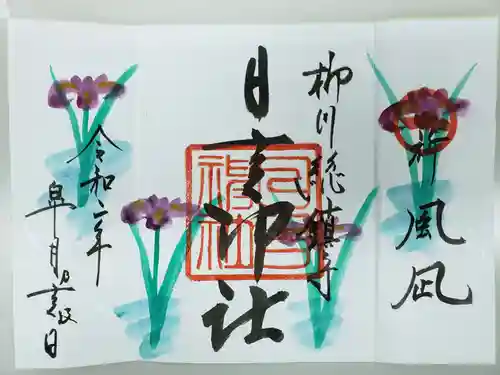 祈
風凪
柳川総鎮守
日吉神社
令和二年
皐月吉日